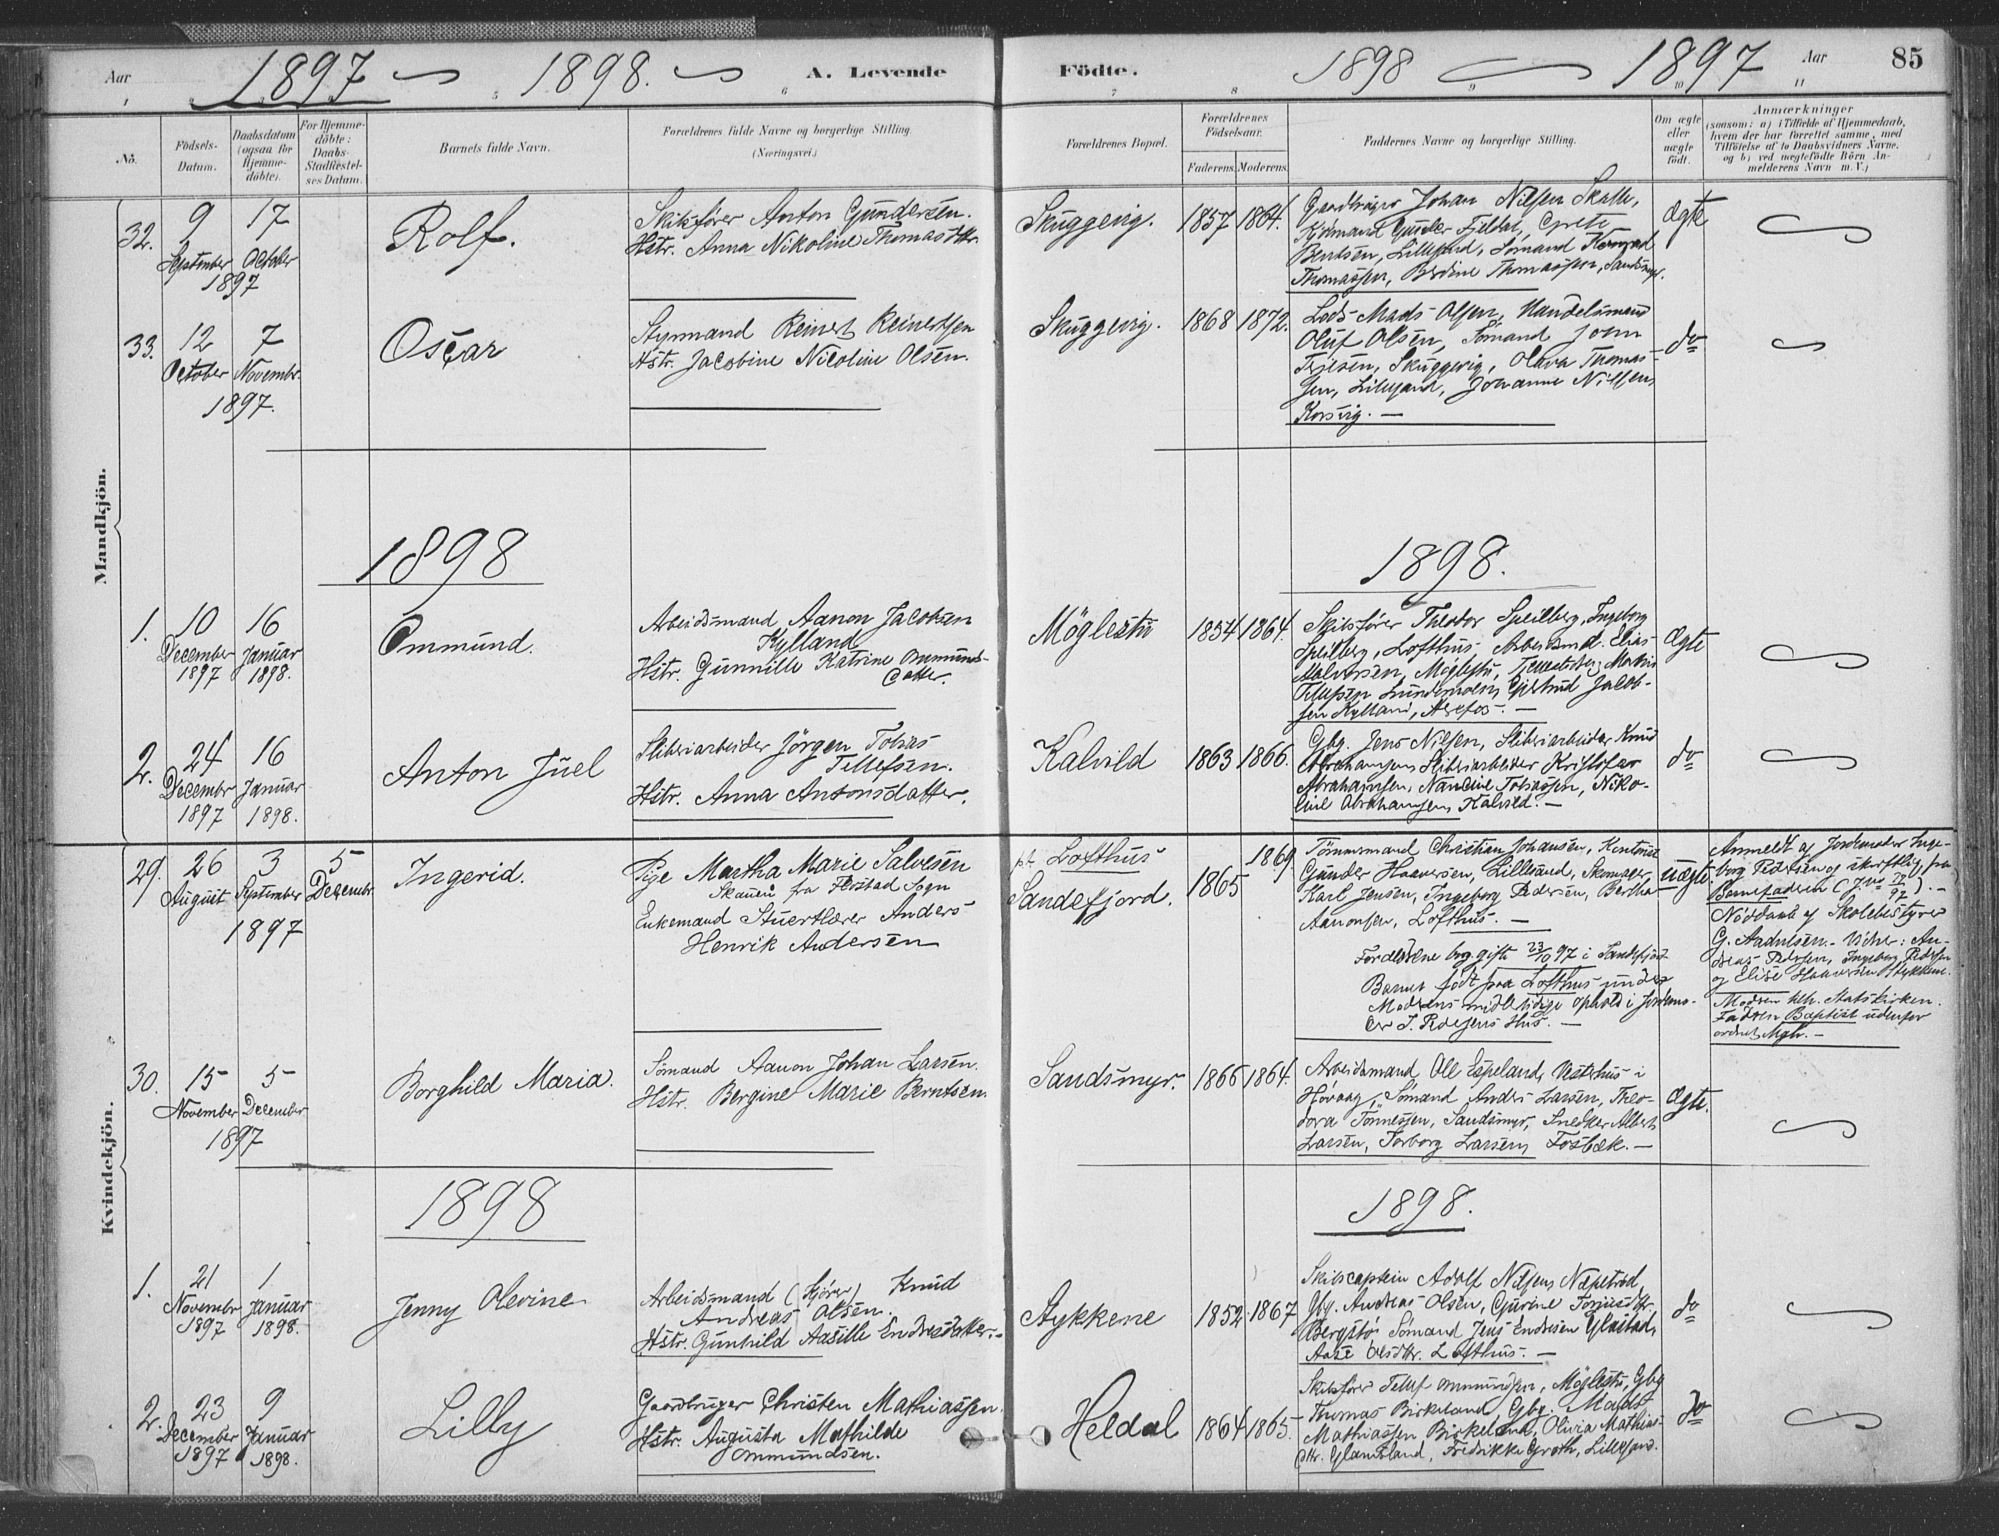 Aar 1897 ~ 1898. ~ A. Levende Födte. 1898 ~ 1897 Aar 85
1 5 6 7 8 9 10 11
No.
Födsels-
Datum.
Daabsdatum
(ogsaa for
Hjemme-
döbte).
For Hjemme-
döbte:
Daabs-
Stadfæstel-
ses Datum.
Barnets fulde Navn.
Forældrenes fulde Navne og borgerlige Stilling.
(Næringsvei.)
Forældrenes Bopæl.
Forældrenes
Födselsaar.
Faderens. Moderens.
Faddernes Navne og borgerlige Stilling.
Om ægte
eller
uægte
födt.
Anmærkninger
(saasom: a) i Tilfælde af Hjemmedaab,
hvem der har forrettet samme, med
Tilföielse af to Daabsvidners Navne.
og b) ved uægtefödte Börn An-
melderens Navn m. V.)
Mandkjön.
32.
9
September
17
October
1897
Rolf.
Skibsfører Anton Gundersen.
Hstr. Anna Nikoline Thomasdtr.
Skuggevig.
1857 1864.
Gaardbruger Johan Nilsen
Gunder Fjeldal, Grete
Bentsen, Lillesand, Sømand Konrad
Thomassen, Berdine Thomassen, Sandsmyr.
Ægte
33.
12
October
7
Novembr.
1897.
Oscar
Styrmand Reinert Reinertsen
Hstr. Jacobine Nicoline Olsen.
Skuggevig.
1868 1872.
Lods Mads Olsen, Handelsmand
Oluf Olsen, Sømand John
Skuggevig, Olava Thomas-
sen, Lillesand, Johanne Nilsen,
Korsvig. —
do
1898
1898.
1.
10
December
1897
16
Januar
1898.
Ommund.
Arbeidsmand Aanon Jacobsen
Kylland
Hstr. Gunnille Katrine Ommunds-
Datter.
Möglestu
1854 1864.
Skibsfører Theodor Speilberg, Ingeborg
Speilberg, Lofthus, Arbeidsmd. Elias
Halvorsen, Möglestu,
Tellefsen Gjertrud Jacob-
sen Kylland, —
Ægte
2.
24
Decembr
1897
16
Januar
1898.
Anton Juel
Sliberiarbeider Jörgen Tobias
Tellefsen.
Hstr. Anna Antonsdatter.
Kalvild
1863 1866.
Gbg. Jens Nilsen, Sliberiarbeider Knud
Abrahamsen, Sliberiarbeider Kristofer
Abrahamsen, Tobiassen, Niko-
line Abrahamsen, Kalvild. —
do
Kvindekjön.
29.
26
August
3
September
1897
5
Decembr.
Ingerid.
Pige Martha Marie Salvesen
fra Sogn
Enkemand Anders
Henrik Andersen
pt. Lofthus
Sandefjord.
1865 1869.
Tømmermand Christian Johansen,
Gunder Haaversen, Lillesand,
Karl Jensen, Ingeborg Pedersen, Bertha
Aanonsen, Lofthus. —
Forældrene bog gift 23/10 97 i Sandefjord
Barnet født paa Lofthus under
Moderens midlertidige Ophold i Jordmo-
der Hus. —
uægte
Anmeldt af Jordmoder Inge-
borg Pedersen og skriftlig fra
Barnefaderen
Nöddøbt af Skolebestyrer
G. Aadnesen. Vidner: An-
dreas Pedersen, Ingeborg Pedersen
og Elise Haaversen Stykkene.
Moderen tilh. Statskirken.
Faderen Baptist udenfor
ordnet Mgh. —
30.
15
November
5
December
1897
Borghild Maria.
Sømand Aanon Johan Larsen.
Hstr. Bergine Marie Berntsen.
Sandsmyr.
1866 1864.
Arbeidsmand Ole Espeland, Vesterhus i
Høvaag, Sømand Anders Larsen, Theo-
dora Tönnessen, Sandsmyr, Snedker Albert
Larsen, Torborg Larsen, Fosbæk. —
Ægte.
1898
1898.
1.
21
Novembr
1897
1
Januar
1898.
Jenny Olevine
Arbeidsmand (Kjører) Knud
Andreas Olsen.
Hstr. Gunhild Aasille Endresdatter.
Stykkene
1852 1867
Skibscaptein Adolf Nilsen, Næpetrød,
Gbg. Andreas Olsen, Gurine Torjusdtr.
Bergstø, Sømand Jens Endresen Glastad,
Aase Olsdtr. Lofthus. —
do
2.
23
December
1897
9
Januar
1898.
Lilly
Gaardbruger Christen Mathiassen.
Hstr. Augusta Mathilde
Ommundsen.
Heldal
1864 1865.
Skibsfører Tellef Ommundsen, Möglestu, Gbg
Thomas Birkeland Gbg. Mads
Mathiassen Birkeland, Olivia Mathias-
dtr. Glamsland, Fredrikke Groth, Lillesand.
do